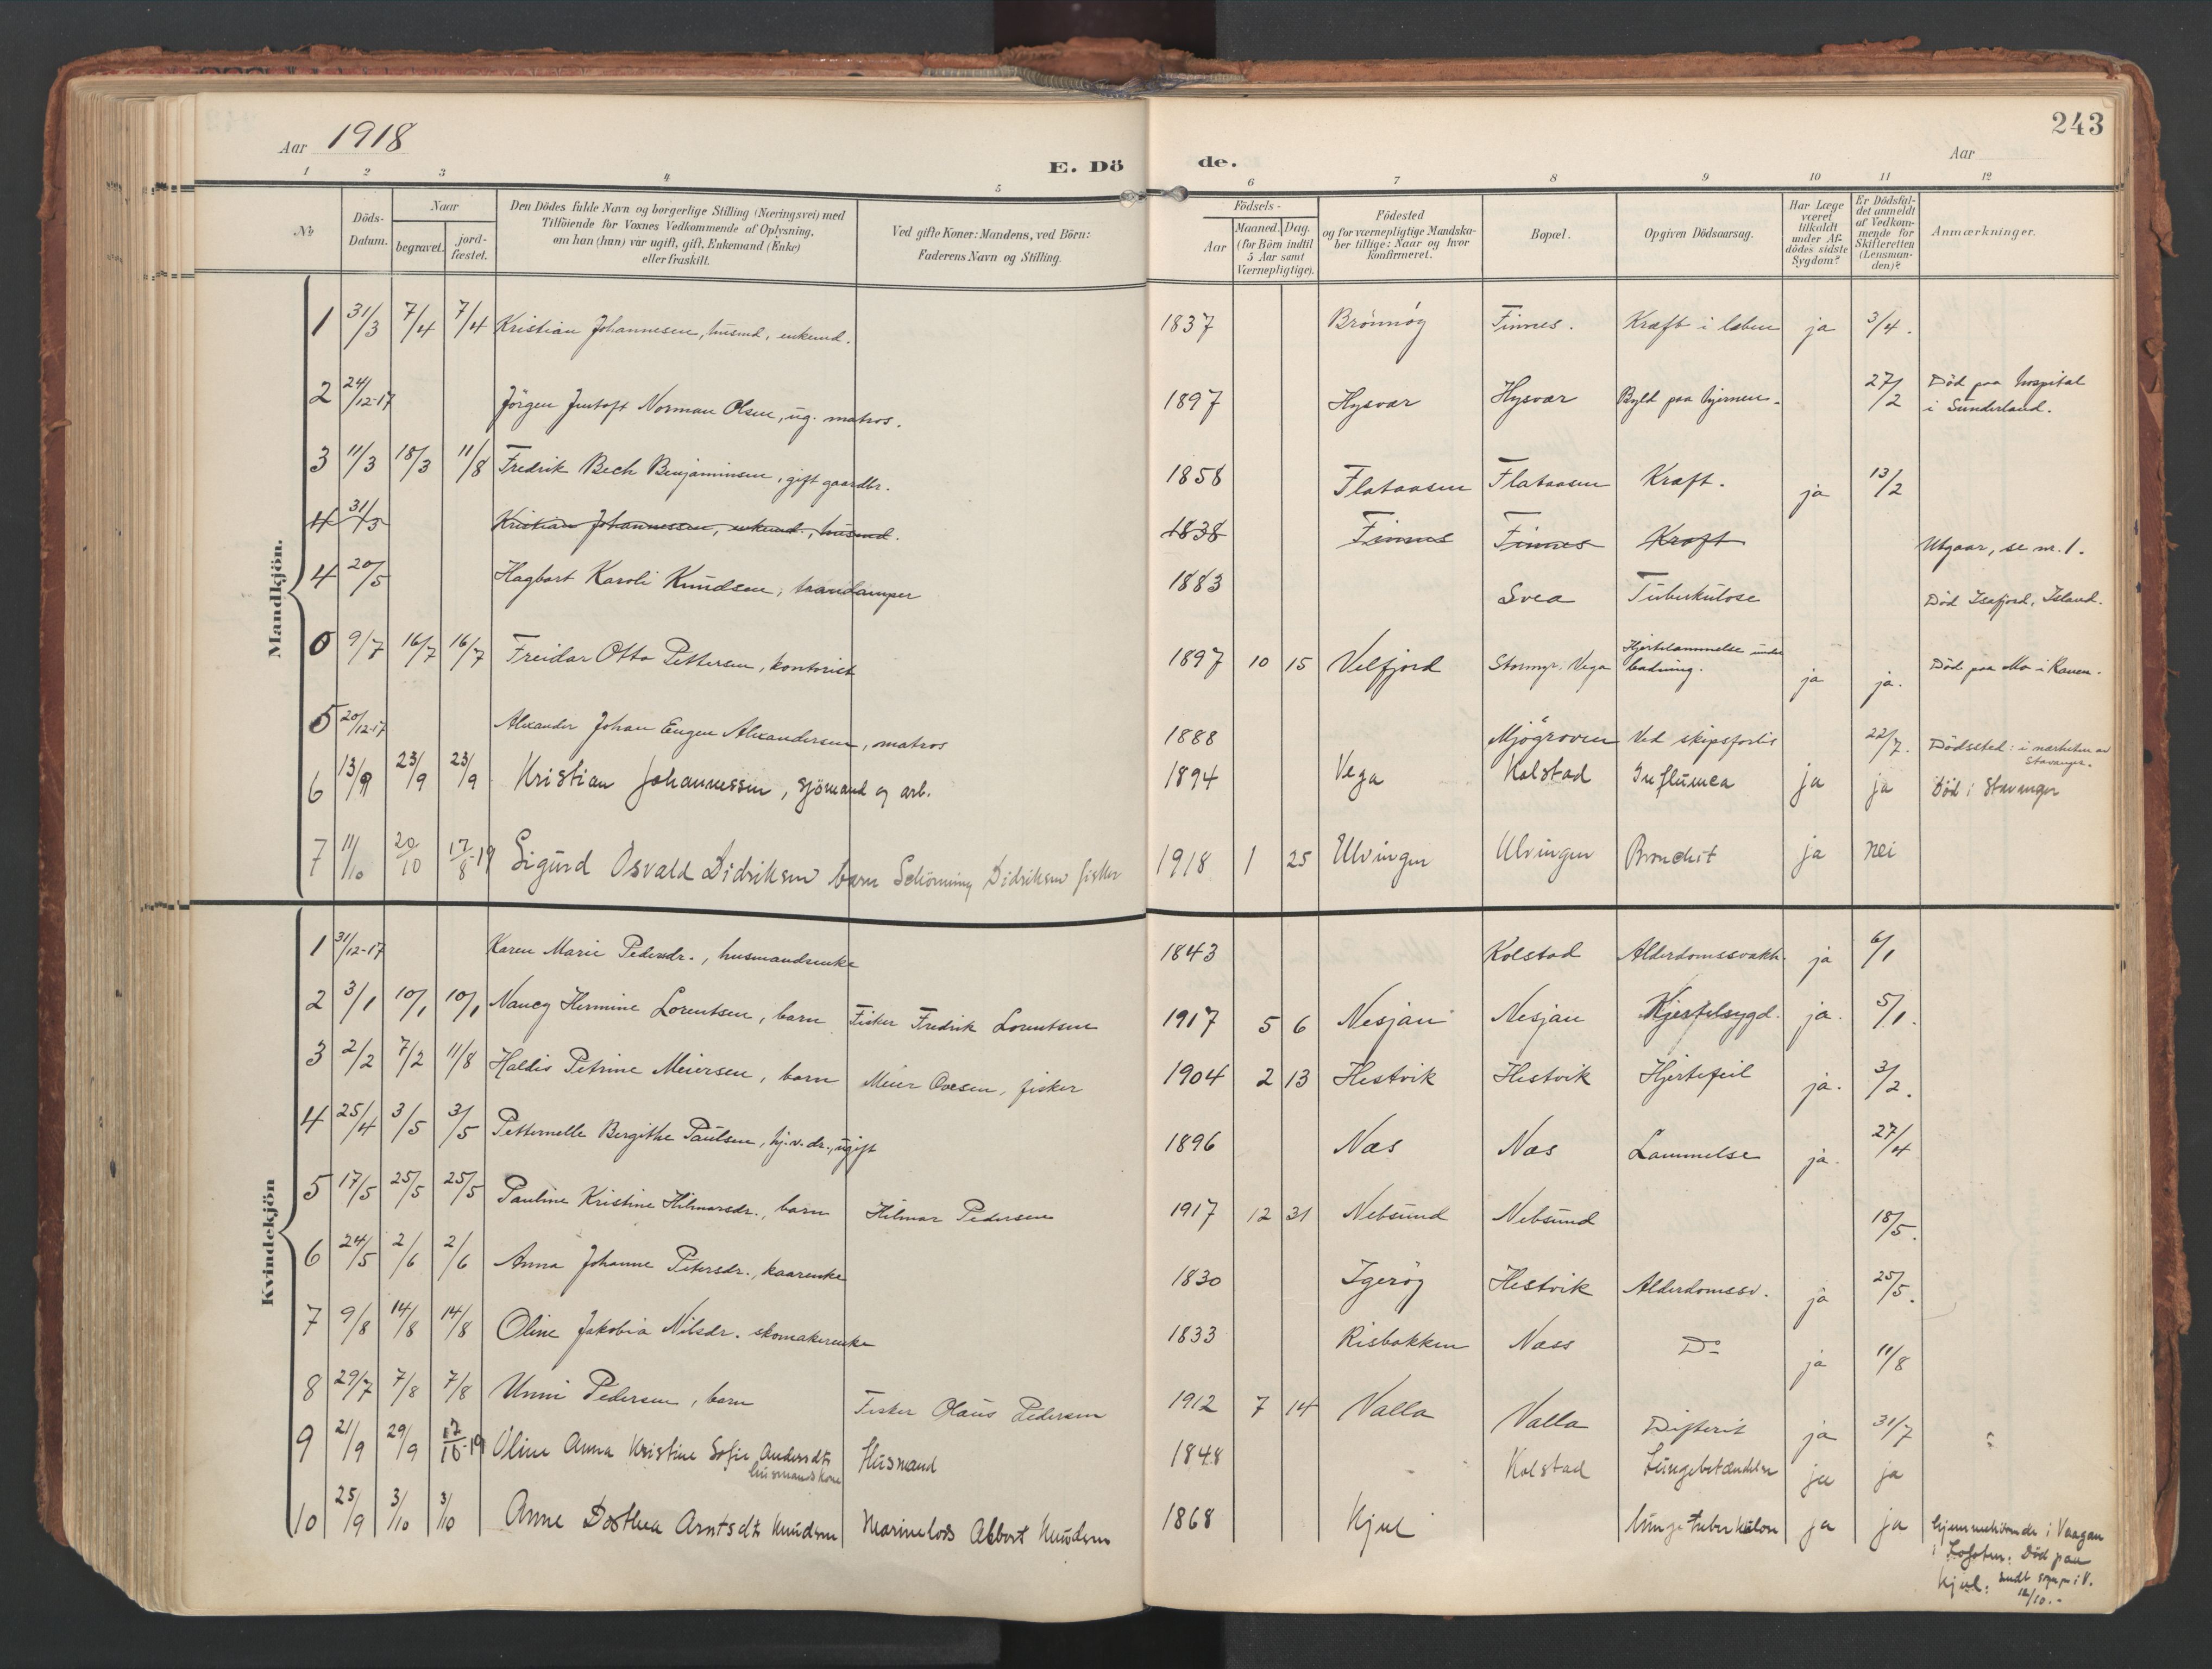 243
Aar 1918
E. Dö de.
Aar
1 2 3 4 5 6 7 8 9 10 11 12
No
Döds-Datum.
Naar
begravet.
jord-fæstet.
Den Dödes fulde Navn og borgerlige Stilling (Næringsvei) med
Tilföiende for Voxnes Vedkommende af Oplysning,
om han (hun) var ugift, gift, Enkemand (Enke)
eller fraskilt.
Ved gifte Koner: Mandens, ved Börn:
Faderens Navn og Stilling.
Födsels-
Aar
Maaned. Dag.
(for Börn indtil
5 Aar samt
Værnepligtige).
Födested
og for værnepligtige Mandska-
ber tillige: Naar og hvor
konfirmeret.
Bopæl.
Opgiven Dödsaarsag.
Har Læge
været
tilkaldt
under Af-
dödes sidste
Sygdom?
Er Dödsfal-
det anmeldt
af Vedkom-
mende for
Skifteretten
(Lensman-
den)?
Anmærkninger.
Mandkjön.
1 31/3 7/4 7/4 Kristian Johannesen, husmd, enkemd. 1837 Brönnöy Finnes. Kræft i læben ja 3/4.
2 24/12-17 Jörgen Norman Olsen, ug. matros. 1897 Hysvær Hysvær Byld paa hjernen. 27/2 Död paa hospital
i Sunderland.
3 11/3 18/3 11/8 Fredrik Bech Benjaminsen, gift gaardbr. 1858 Flataasen Flataasen Kræft. ja 13/2
4 31/3 Kristian Johannessen, enkemd., husmd. 1838 Finnes Finnes Kræft Utgaar, se nr. 1.
4 20/5 Hagbart Karoli Knudsen, trandamper 1883 Svea Tuberkulose Död Isafjord, Island.
5 9/7 16/7 16/7 Freidar Otto Pettersen, kontorist 1897 10 15 Velfjord Stormyr. Vega Hjertelammelse under
badning. ja ja. Död paa Mo i Ranen.
5 20/12-17 Alexander Johan Eugen Alexandersen, matros 1888 Mjögroven Ved skipsforlis 22/7. Dödssted: i nærheten av
Stavanger.
6 13/9 23/9 23/9 Kristian Johannessen, sjömand og arb. 1894 Vega Kolstad Influenca ja ja Död i Stavanger
7 11/10 20/10 17/8-19 Sigurd Osvald Didriksen barn Schönning Didriksen fisker 1918 1 25 Ulvingen Ulvingen Bronchit ja nei
Kvindekjön
1 31/12-17 Karen Marie Pedersdr., husmandsenke 1843 Kolstad Alderdomssvakh. ja 6/1
2 3/1 10/1 10/1 Nancy Hermine Lorentsen, barn Fisker Fredrik Lorentsen 1917 5 6 Nesjan Nesjan Hjertesygd. ja. 5/1.
3 2/2 7/2 11/8 Haldis Petrine Meiersen, barn Meier Ovesen, fisker 1904 2 13 Hestvik Hestvik Hjertefeil ja. 3/2.
4 25/4 3/5 3/5 Petternelle Bergithe Paulsen, hj.v. dr., ugift 1896 Næs Næs Lammelse ja. 27/4
5 17/5 25/5 25/5 Pauline Kristine Hilmarsdr., barn Hilmar Pedersen 1917 12 31 Nebsund Nebsund 18/5.
6 24/5 2/6 2/6 Anna Johanne Petersdr., kaarenke 1830 Igeröy Hestvik Alderdomssv. ja 25/5.
7 9/8 14/8 14/8 Oline Jakobia Nilsdr. skomakerenke 1833 Risbakken Næss Do ja 11/8
8 29/7 7/8 7/8 Unni Pedersen, barn Fisker Olaus Pedersen 1912 7 14 Valla Valla Difterit ja 31/7
9 21/9 29/9 17/10-19 Oline Anna Kristine Sofie Andersdtr
husmandskone Husmand 1848 Kolstad Lungebetændelse ja ja
10 25/9 3/10 3/10 Anne Dorthea Arntsdtr Knudsen Marinelods Albert Knudsen 1868 Kjul lungetuberkulose ja ja hjemmehörende i Vaagan
i Lofoten. Död paa
Kjul. sendt sogn.pr. i V.
12/10.-